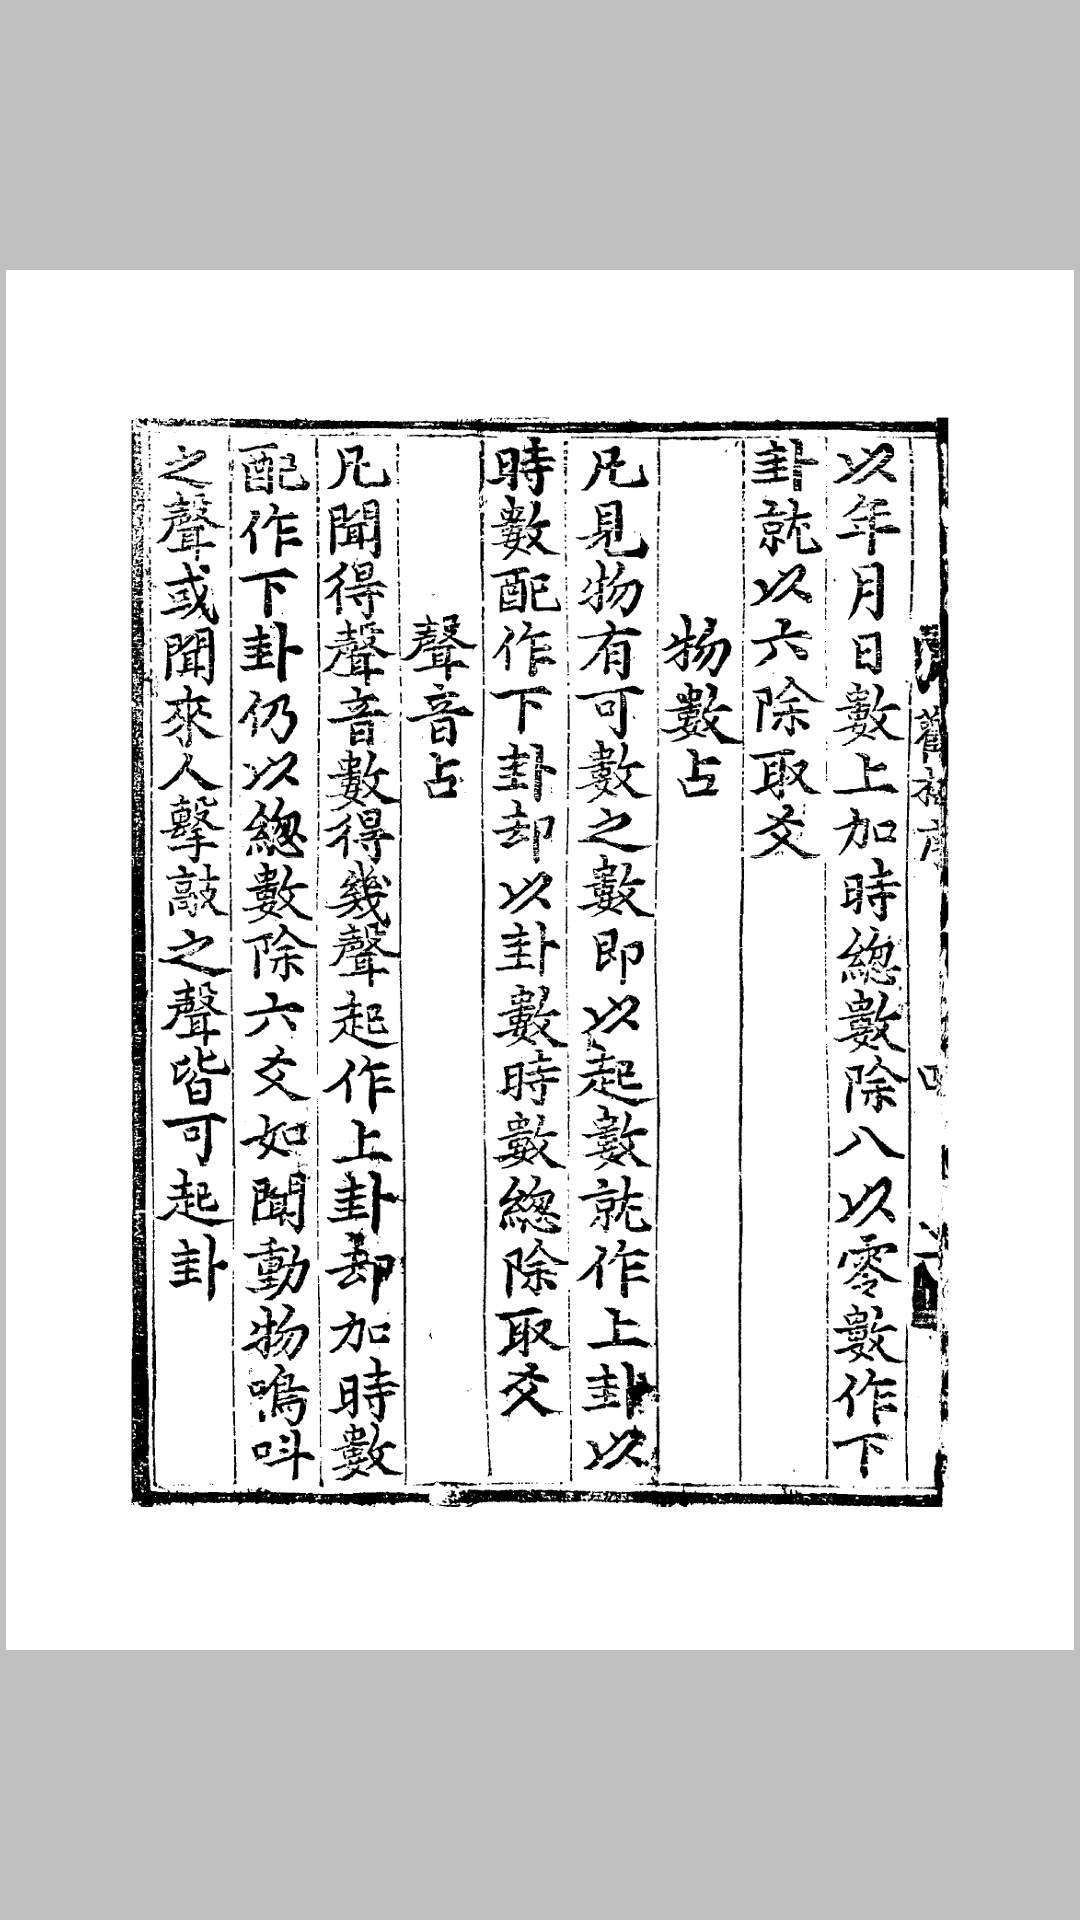 以年月日數上加時總數除八以零數作下
卦就以六除取爻
物數占
凡見物有可數之數即以起數就作上卦以
時數配作下卦却以卦數時數總除取爻
聲音占
凡聞得聲音數得幾聲起作上卦却加時數
配作下卦仍以總數除六爻如聞動物鳴呌
之聲或聞來人擊敲之聲皆可起卦